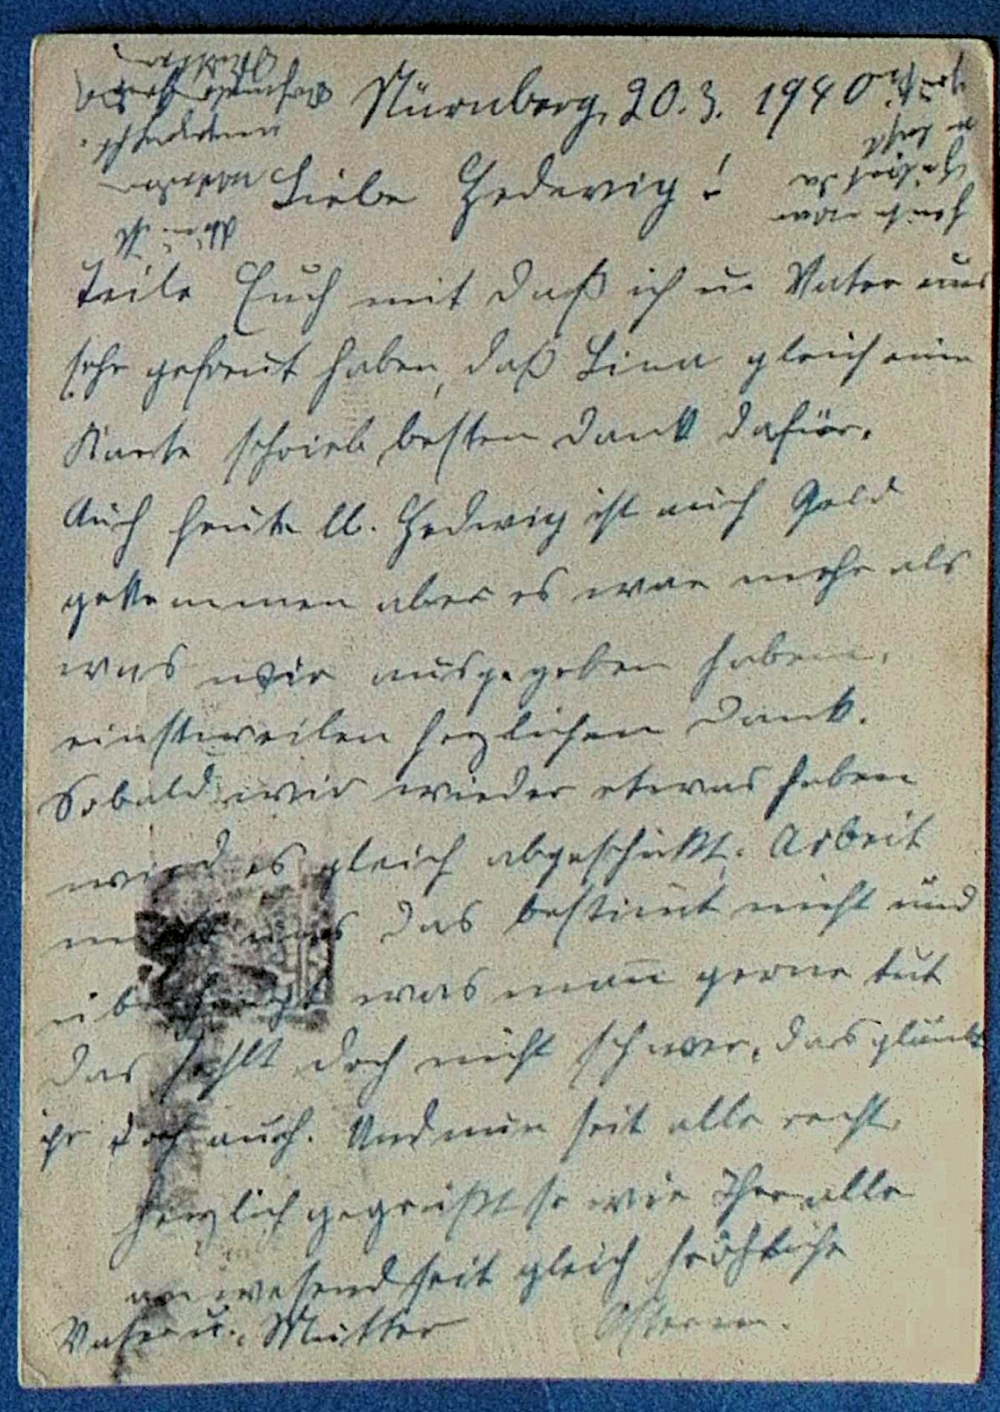 Nürnberg, 20.3. 1940.
Liebe Hedwig!
Teile Euch mit daß ich u. Vater uns
sehr gefreut haben, daß Lina gleich eine
Karte schrieb besten Dank dafür.
Auch heute lb. Hedwig ist auch Geld
gekommen aber es war mehr als
was wir ausgegeben haben,
einstweilen herzlichen Dank.
Sobald wir wieder etwas haben
wird es gleich abgeschickt. Arbeit
macht uns das bestimt nicht und
überhaupt was man gerne tut
das fehlt doch nicht schwer, das glaubt
ihr doch auch. Und nun seit alle recht
herzlich gegrüßt so wie Ihr alle
anwesend seit gleich fröhliche
Vater u. Mutter Ostern.